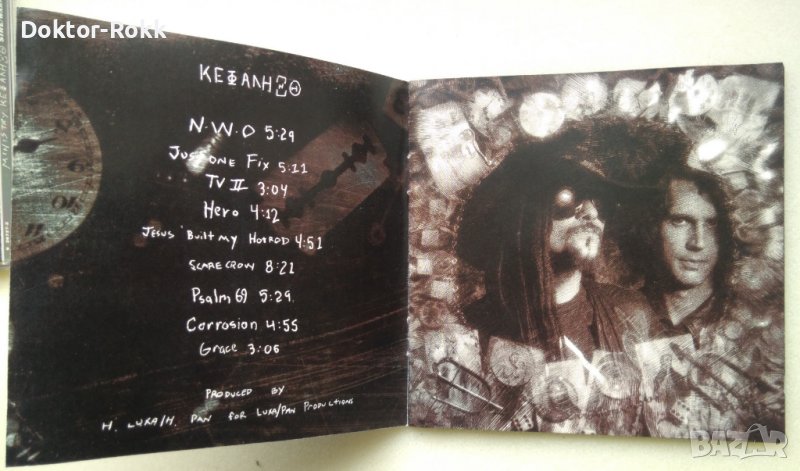 Doktor-Rokk
ΚΕΦΑΛΗΞΘ
N.W.O 5:29
Just One Fix 5:11
TV II 3:04
Hero 4:12
Jesus Built my Hotrod 4:51
Scarecrow 8:21
Psalm 69 5:29
Corrosion 4:55
Grace 3:06
Produced by
H. Luxa/H. Pan for Luxa/Pan Productions
MINISTRY ΚΕΦΑΛΗΞΘ
BAZAR